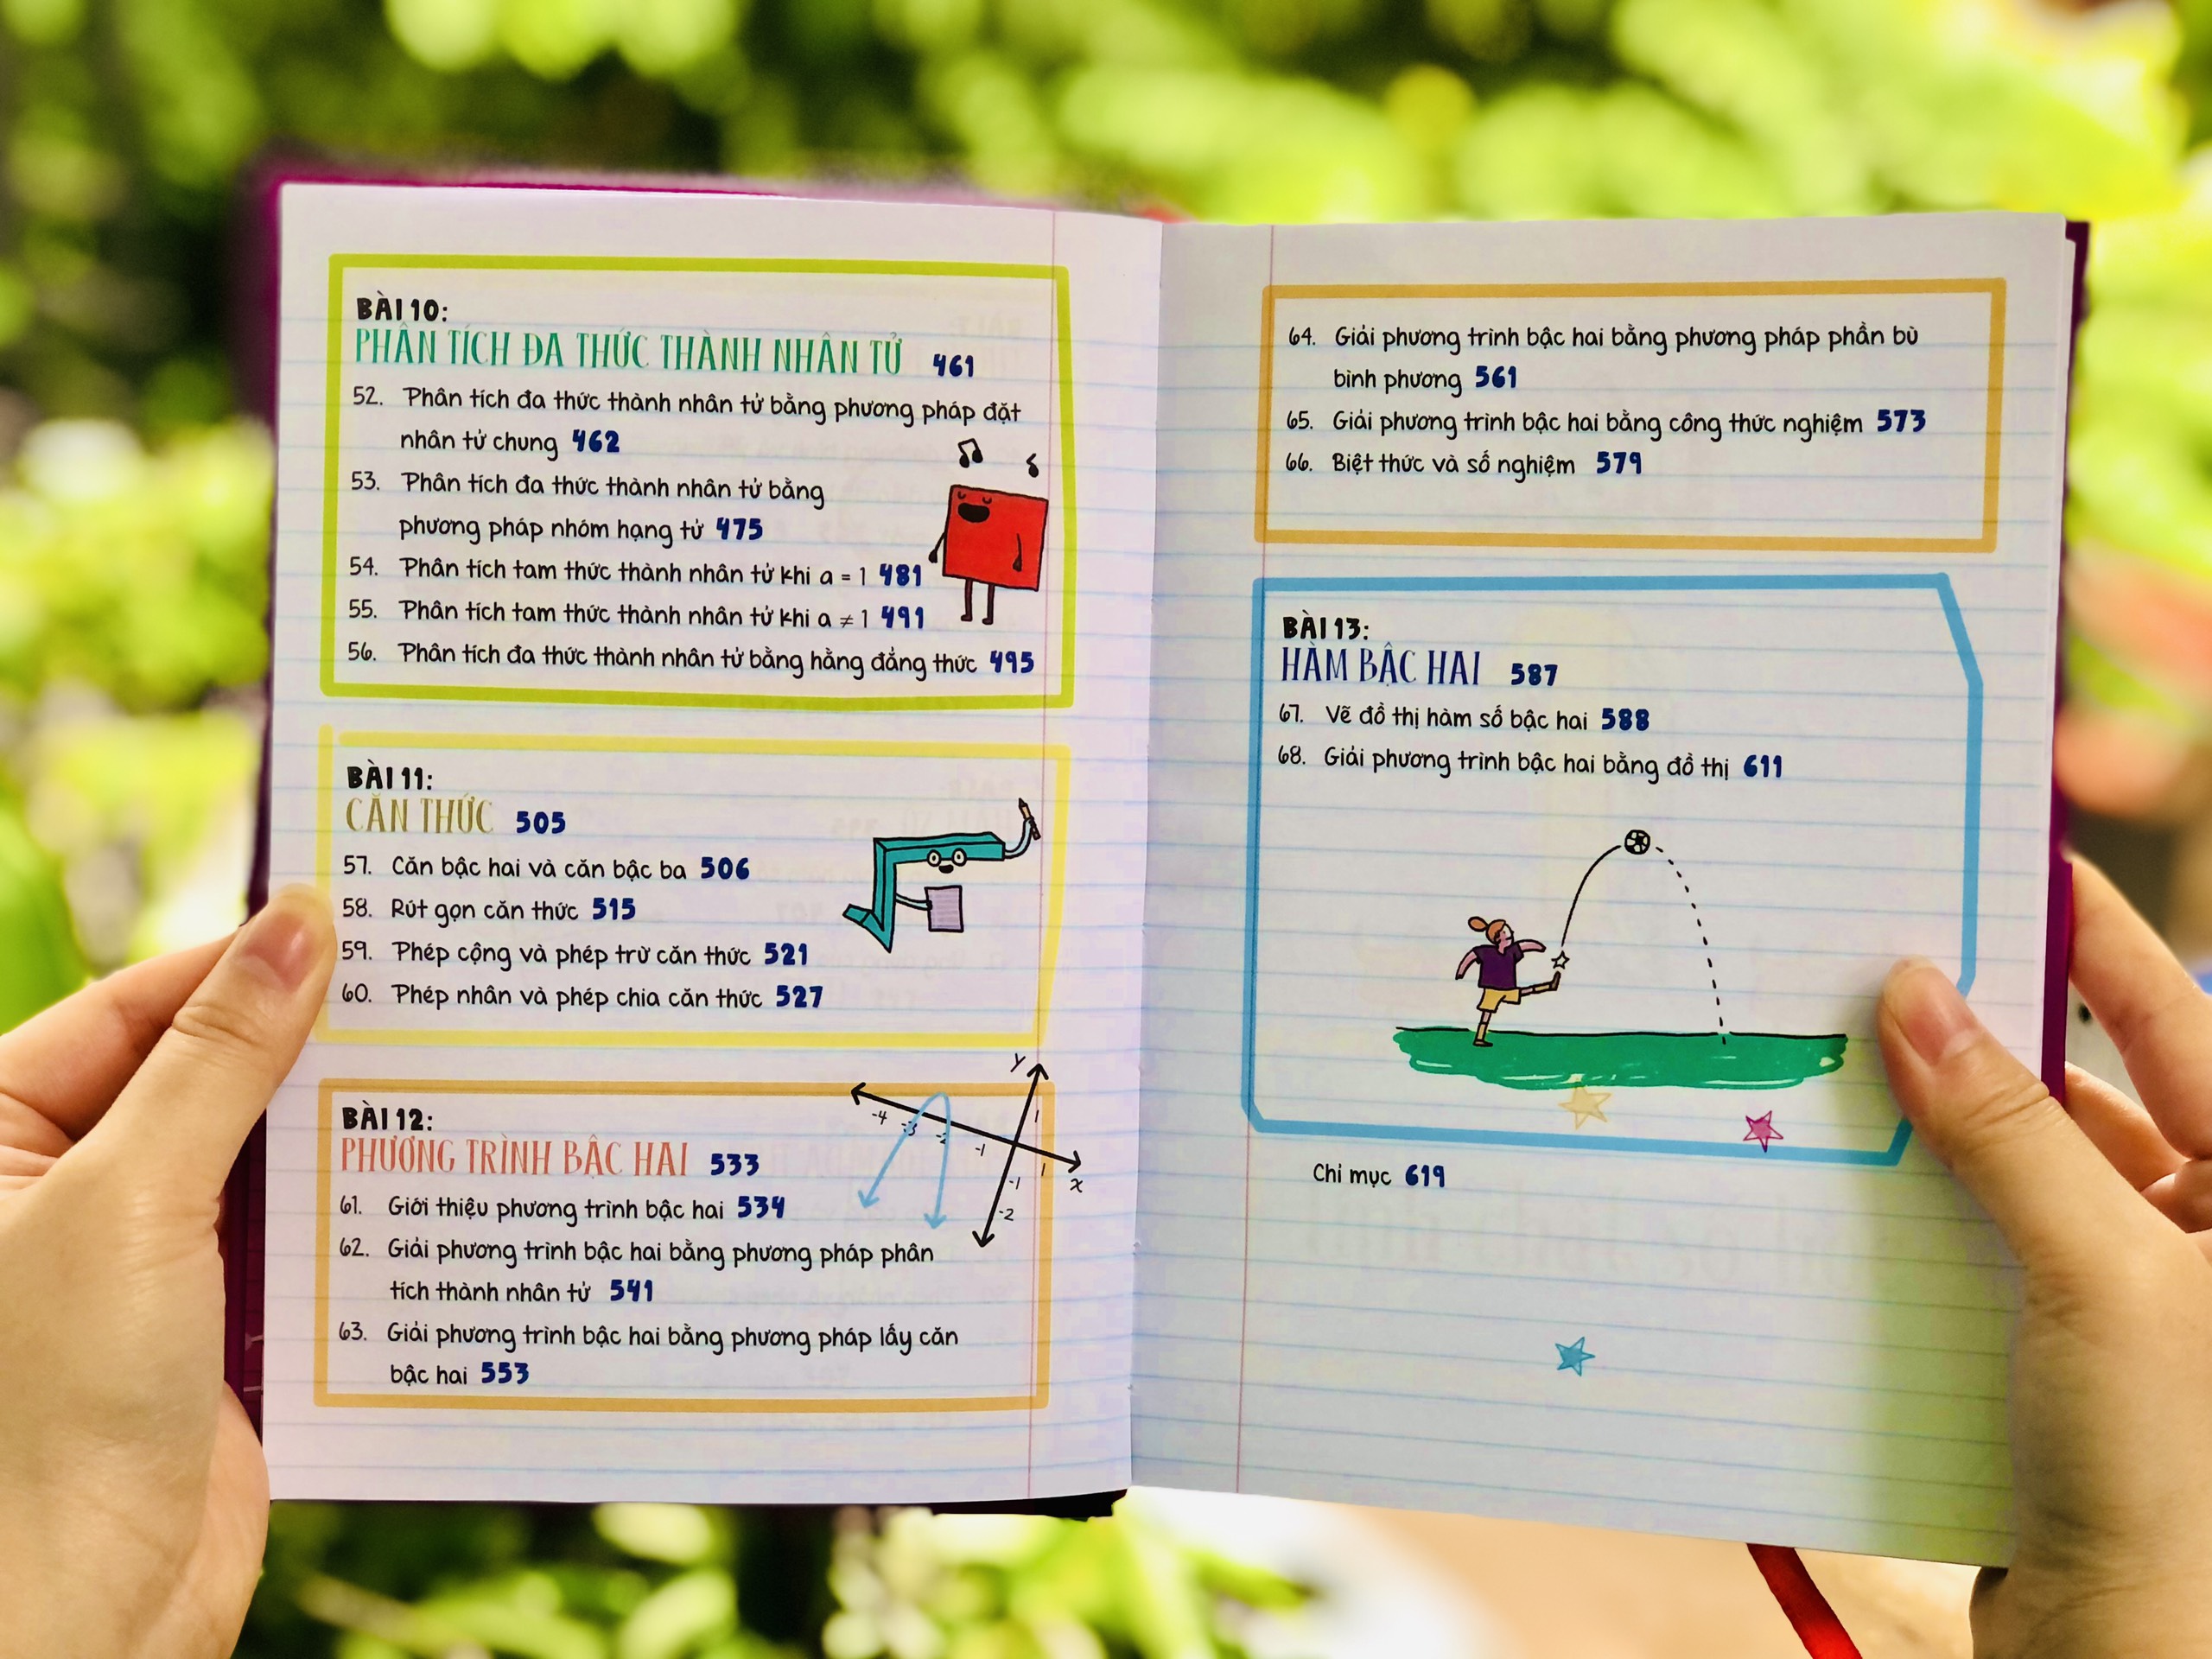 BÀI 10:
PHÂN TÍCH ĐA THỨC THÀNH NHÂN TỬ 461
52. Phân tích đa thức thành nhân tử bằng phương pháp đặt
nhân tử chung 462
53. Phân tích đa thức thành nhân tử bằng
phương pháp nhóm hạng tử 475
54. Phân tích tam thức thành nhân tử khi a = 1 481
55. Phân tích tam thức thành nhân tử khi a ≠ 1 491
56. Phân tích đa thức thành nhân tử bằng hằng đẳng thức 495
BÀI 11:
CĂN THỨC 505
57. Căn bậc hai và căn bậc ba 506
58. Rút gọn căn thức 515
59. Phép cộng và phép trừ căn thức 521
60. Phép nhân và phép chia căn thức 527
BÀI 12:
PHƯƠNG TRÌNH BẬC HAI 533
61. Giới thiệu phương trình bậc hai 534
62. Giải phương trình bậc hai bằng phương pháp phân
tích thành nhân tử 541
63. Giải phương trình bậc hai bằng phương pháp lấy căn
bậc hai 553
y
-4 -3 -2 -1 1
1
x
-1
-2
64. Giải phương trình bậc hai bằng phương pháp phần bù
bình phương 561
65. Giải phương trình bậc hai bằng công thức nghiệm 573
66. Biệt thức và số nghiệm 579
BÀI 13:
HÀM BẬC HAI 587
67. Vẽ đồ thị hàm số bậc hai 588
68. Giải phương trình bậc hai bằng đồ thị 611
Chỉ mục 619